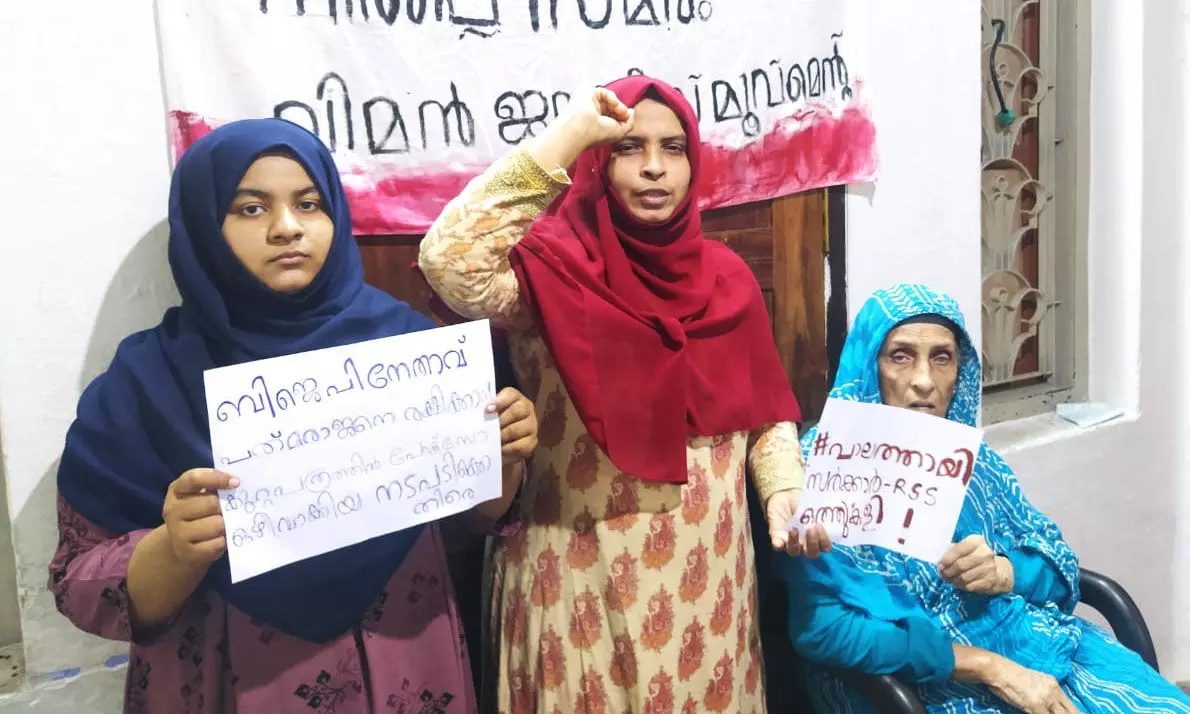 നിൽപ്പ് സമരം
വിമൻ ജസ്റ്റിസ് മൂവ്മെന്റ്
ബിജെപിനേതാവ്
പത്മരാജനെ രക്ഷിക്കാൻ
കുറ്റപത്രത്തിൽ പോക്സോ
ഒഴിവാക്കിയ നടപടിക്കെ
തിരെ
#പാലത്തായി
സർക്കാർ-RSS
ഒത്തുകളി !